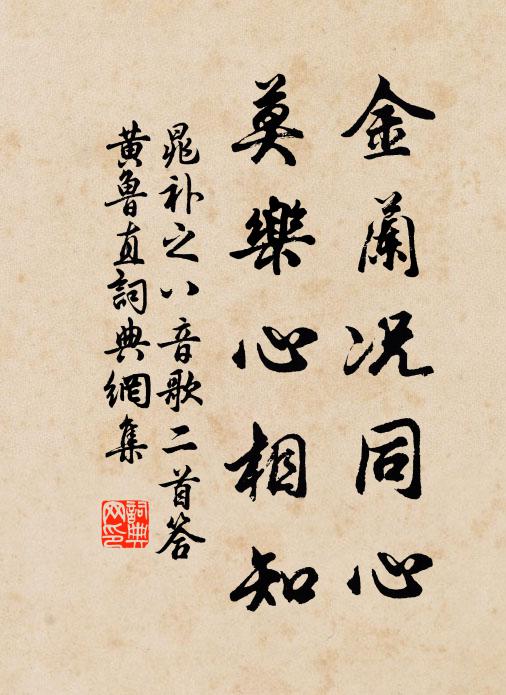 金蘭况同心
莫樂心相知
晁补之八音歌二首答
黄魯直詞典網集
詞典
网印